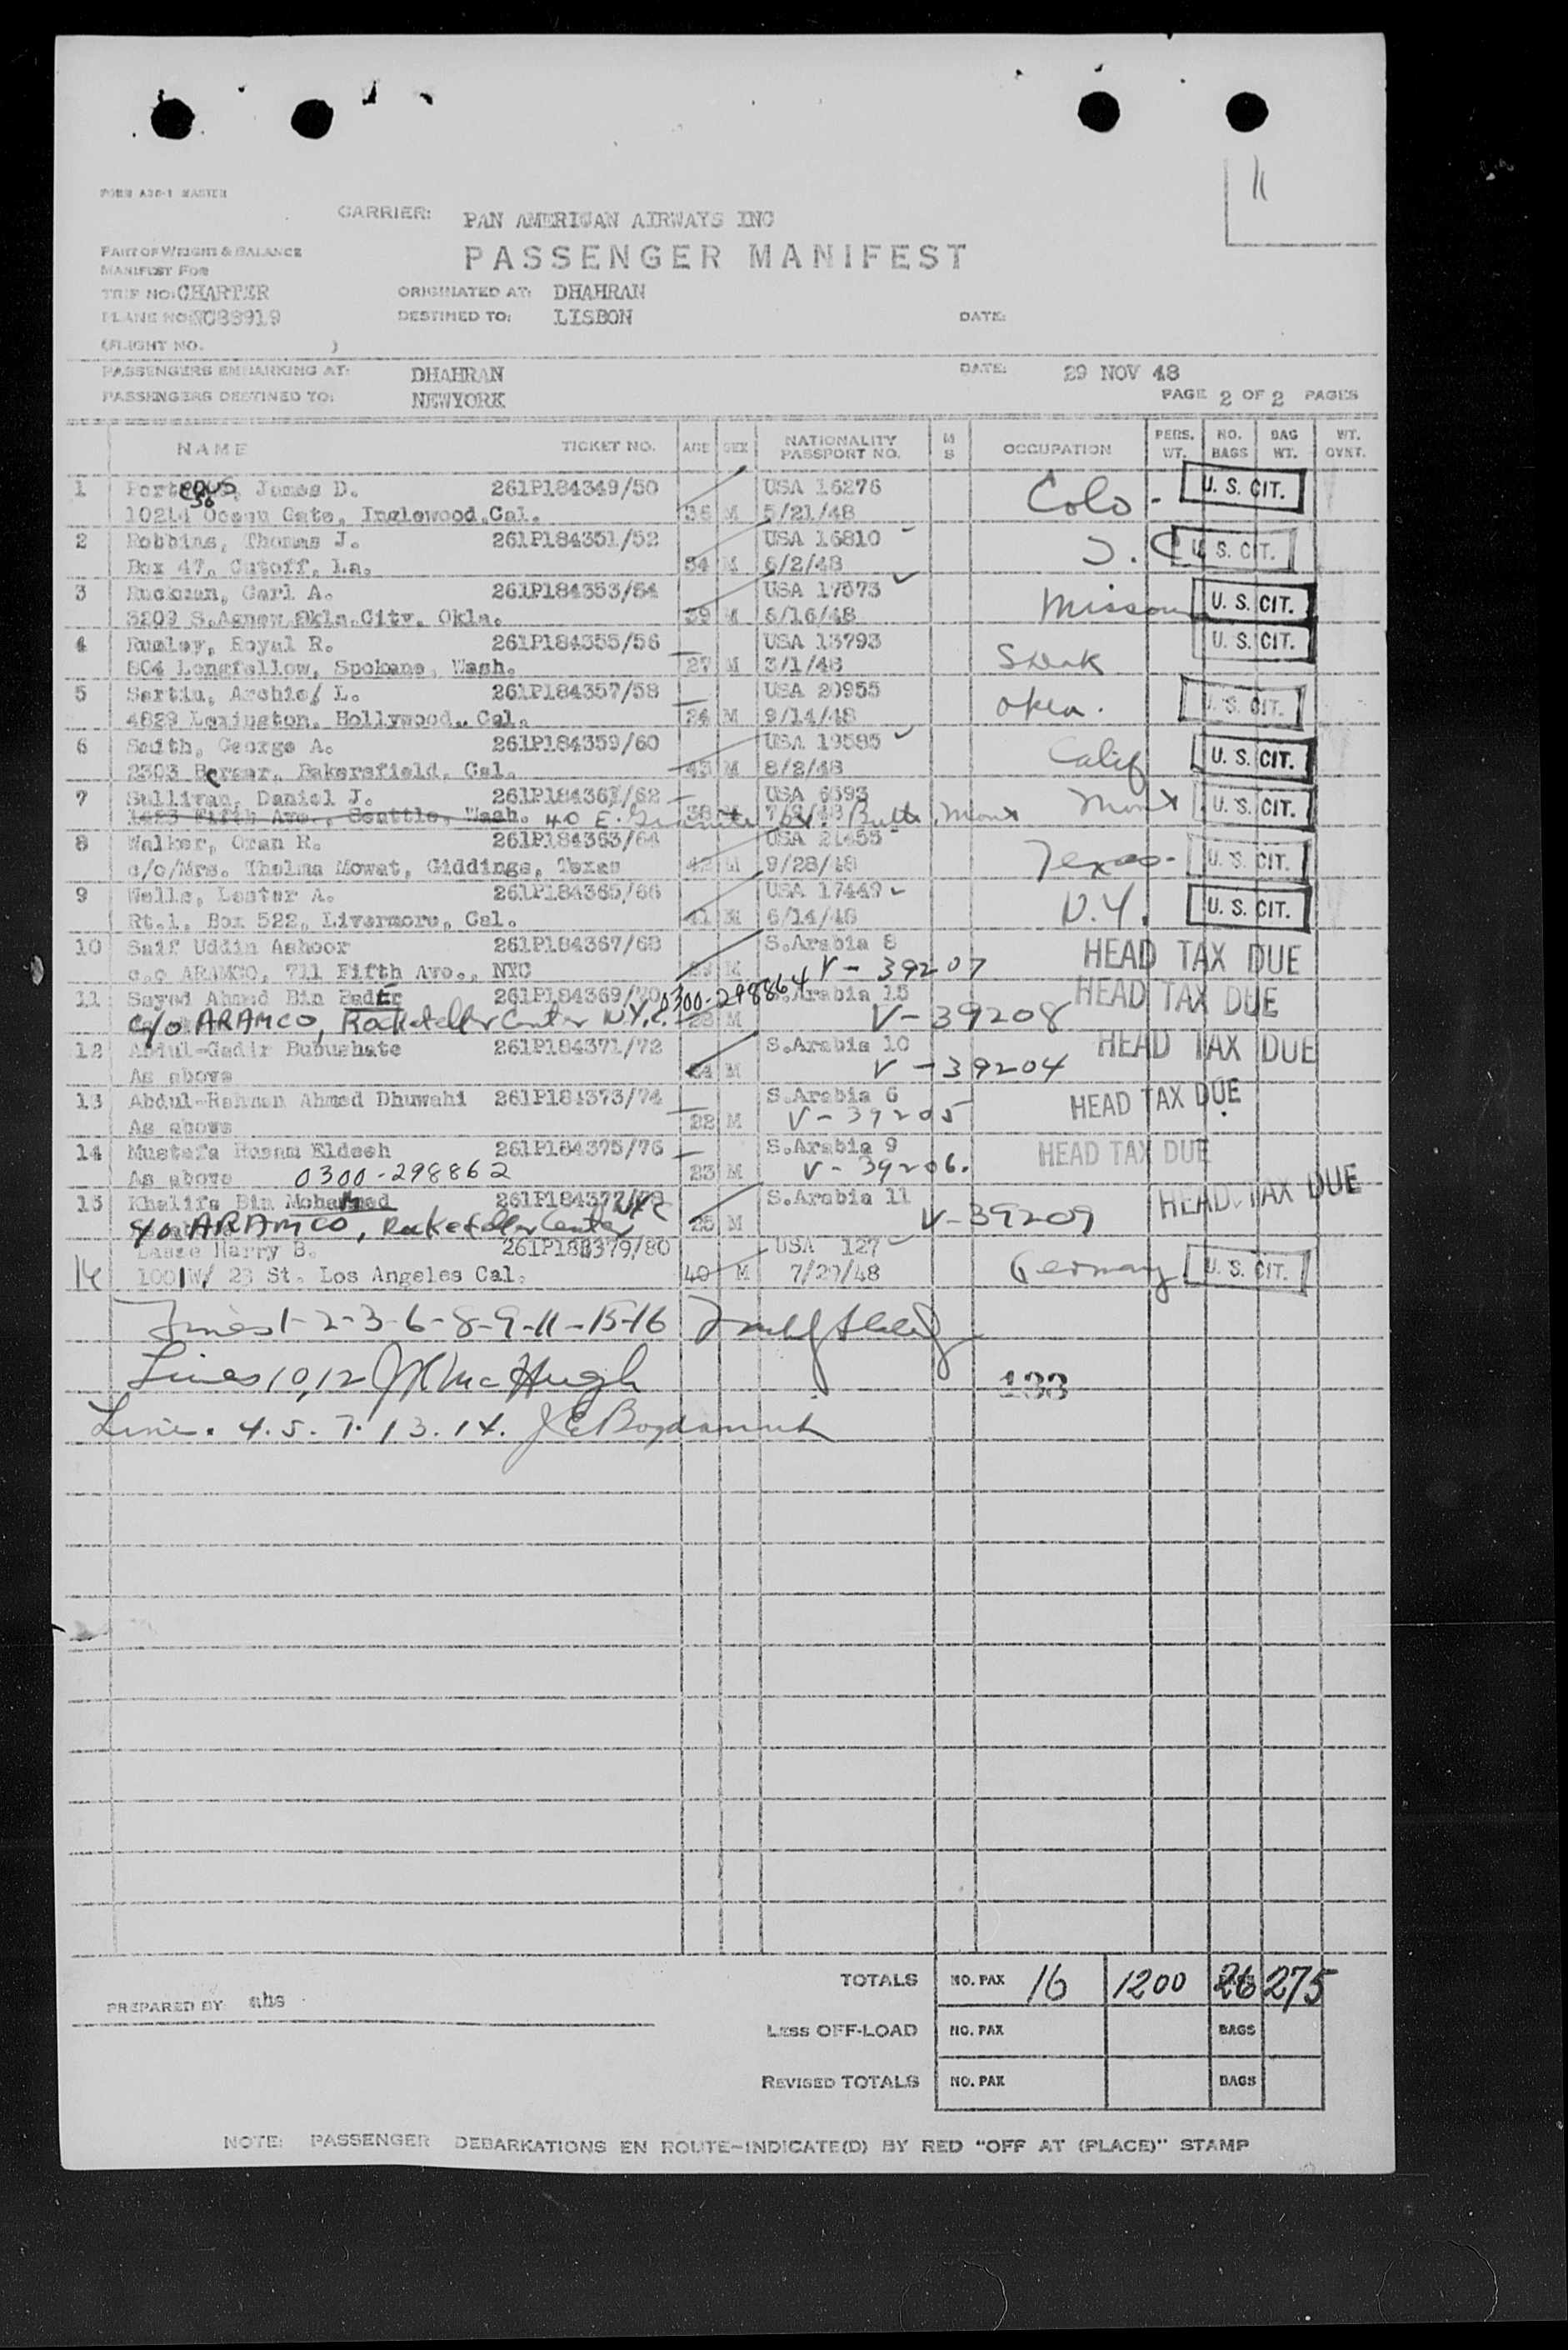 11
FORM A36-1 MASTER
CARRIER: PAN AMERICAN AIRWAYS INC
PART OF WEIGHT & BALANCE
MANIFEST FOR
PASSENGER MANIFEST
TRIP NO: CHARTER ORIGINATED AT: DHAHRAN
PLANE NO: NC88919 DESTINED TO: LISBON DATE:
(FLIGHT NO. )
PASSENGERS EMBARKING AT: DHAHRAN DATE: 29 NOV 48
PASSENGERS DESTINED TO: NEWYORK PAGE 2 OF 2 PAGES
NAME TICKET NO. AGE SEX NATIONALITY PASSPORT NO. M S OCCUPATION PERS. WT. NO. BAGS BAG WT. WT. OVNT.
1 Porteous, James D. 261P184349/50 USA 16276 Colo - U. S. CIT.
Ocean Gate, Inglewood, Cal. 36 M 5/21/48
2 Robbins, Thomas J. 261P184351/52 USA 16810 U. S. CIT.
Box 47, Cutoff, La. 54 M 6/2/48
3 Ruckman, Carl A. 261P184353/54 USA 17573 Missouri U. S. CIT.
3209 S.Agnew Okla.City, Okla. 39 M 6/16/48
4 Rumley, Royal R. 261P184355/56 USA 13793 U. S. CIT.
804 Longfellow, Spokane, Wash. 27 M 3/1/48 S Dak
5 Sartin, Archie L. 261P184357/58 USA 20955 U. S. CIT.
4829 Lexington, Hollywood, Cal. 24 M 9/14/48 Okla.
6 Smith, George A. 261P184359/60 USA 19585 Calif U. S. CIT.
2303 Berger, Bakersfield, Cal. 43 M 8/2/48
7 Sullivan, Daniel J. 261P184361/62 USA 6593 Mont U. S. CIT.
Fifth Ave., Seattle, Wash. 40 E. Granite St. Butte, Mont 38 M
8 Walker, Oran R. 261P184363/64 USA 21455 Texas - U. S. CIT.
c/o/Mrs. Thelma Mowat, Giddings, Texas 42 M 9/28/48
9 Wells, Lester A. 261P184365/66 USA 17449 N.Y. U. S. CIT.
Rt.1, Box 522, Livermore, Cal. 41 M 6/14/48
10 Saif Uddin Ashoor 261P184367/68 S.Arabia 8 HEAD TAX DUE
c.o ARAMCO, 711 Fifth Ave., NYC M V-39207
11 Sayed Ahmed Bin Bader 261P184369/70 0300-298864 S.Arabia 15 HEAD TAX DUE
c/o ARAMCO, Rockefeller Center N.Y.C. M V-39208
12 Abdul-Gadir Bubushate 261P184371/72 S.Arabia 10 HEAD TAX DUE
As above 24 M V-39204
13 Abdul-Rahman Ahmed Dhuwahi 261P184373/74 S.Arabia 6 HEAD TAX DUE
As above 22 M V-39205
14 Mustafa Hosam Eldeeh 261P184375/76 S.Arabia 9 HEAD TAX DUE
As above 0300-298862 23 M V-39206.
15 Khalifa Bin Mohammed 261P184377/78 S.Arabia 11 HEAD TAX DUE
c/o ARAMCO, Rockefeller Center NYC 25 M V-39209
Harry B. 261P184379/80 USA 127
16 1001 W/ 23 St. Los Angeles Cal. 40 M 7/29/48 Germany U. S. CIT.
Lines 1-2-3-6-8-9-11-15-16
Lines 10,12 McHugh
133
Line. 4.5.7.13.14.
TOTALS NO. PAX 16 1200 26 275
PREPARED BY ahs
LESS OFF-LOAD NO. PAX BAGS
REVISED TOTALS NO. PAX BAGS
NOTE: PASSENGER DEBARKATIONS EN ROUTE-INDICATE(D) BY RED "OFF AT (PLACE)" STAMP